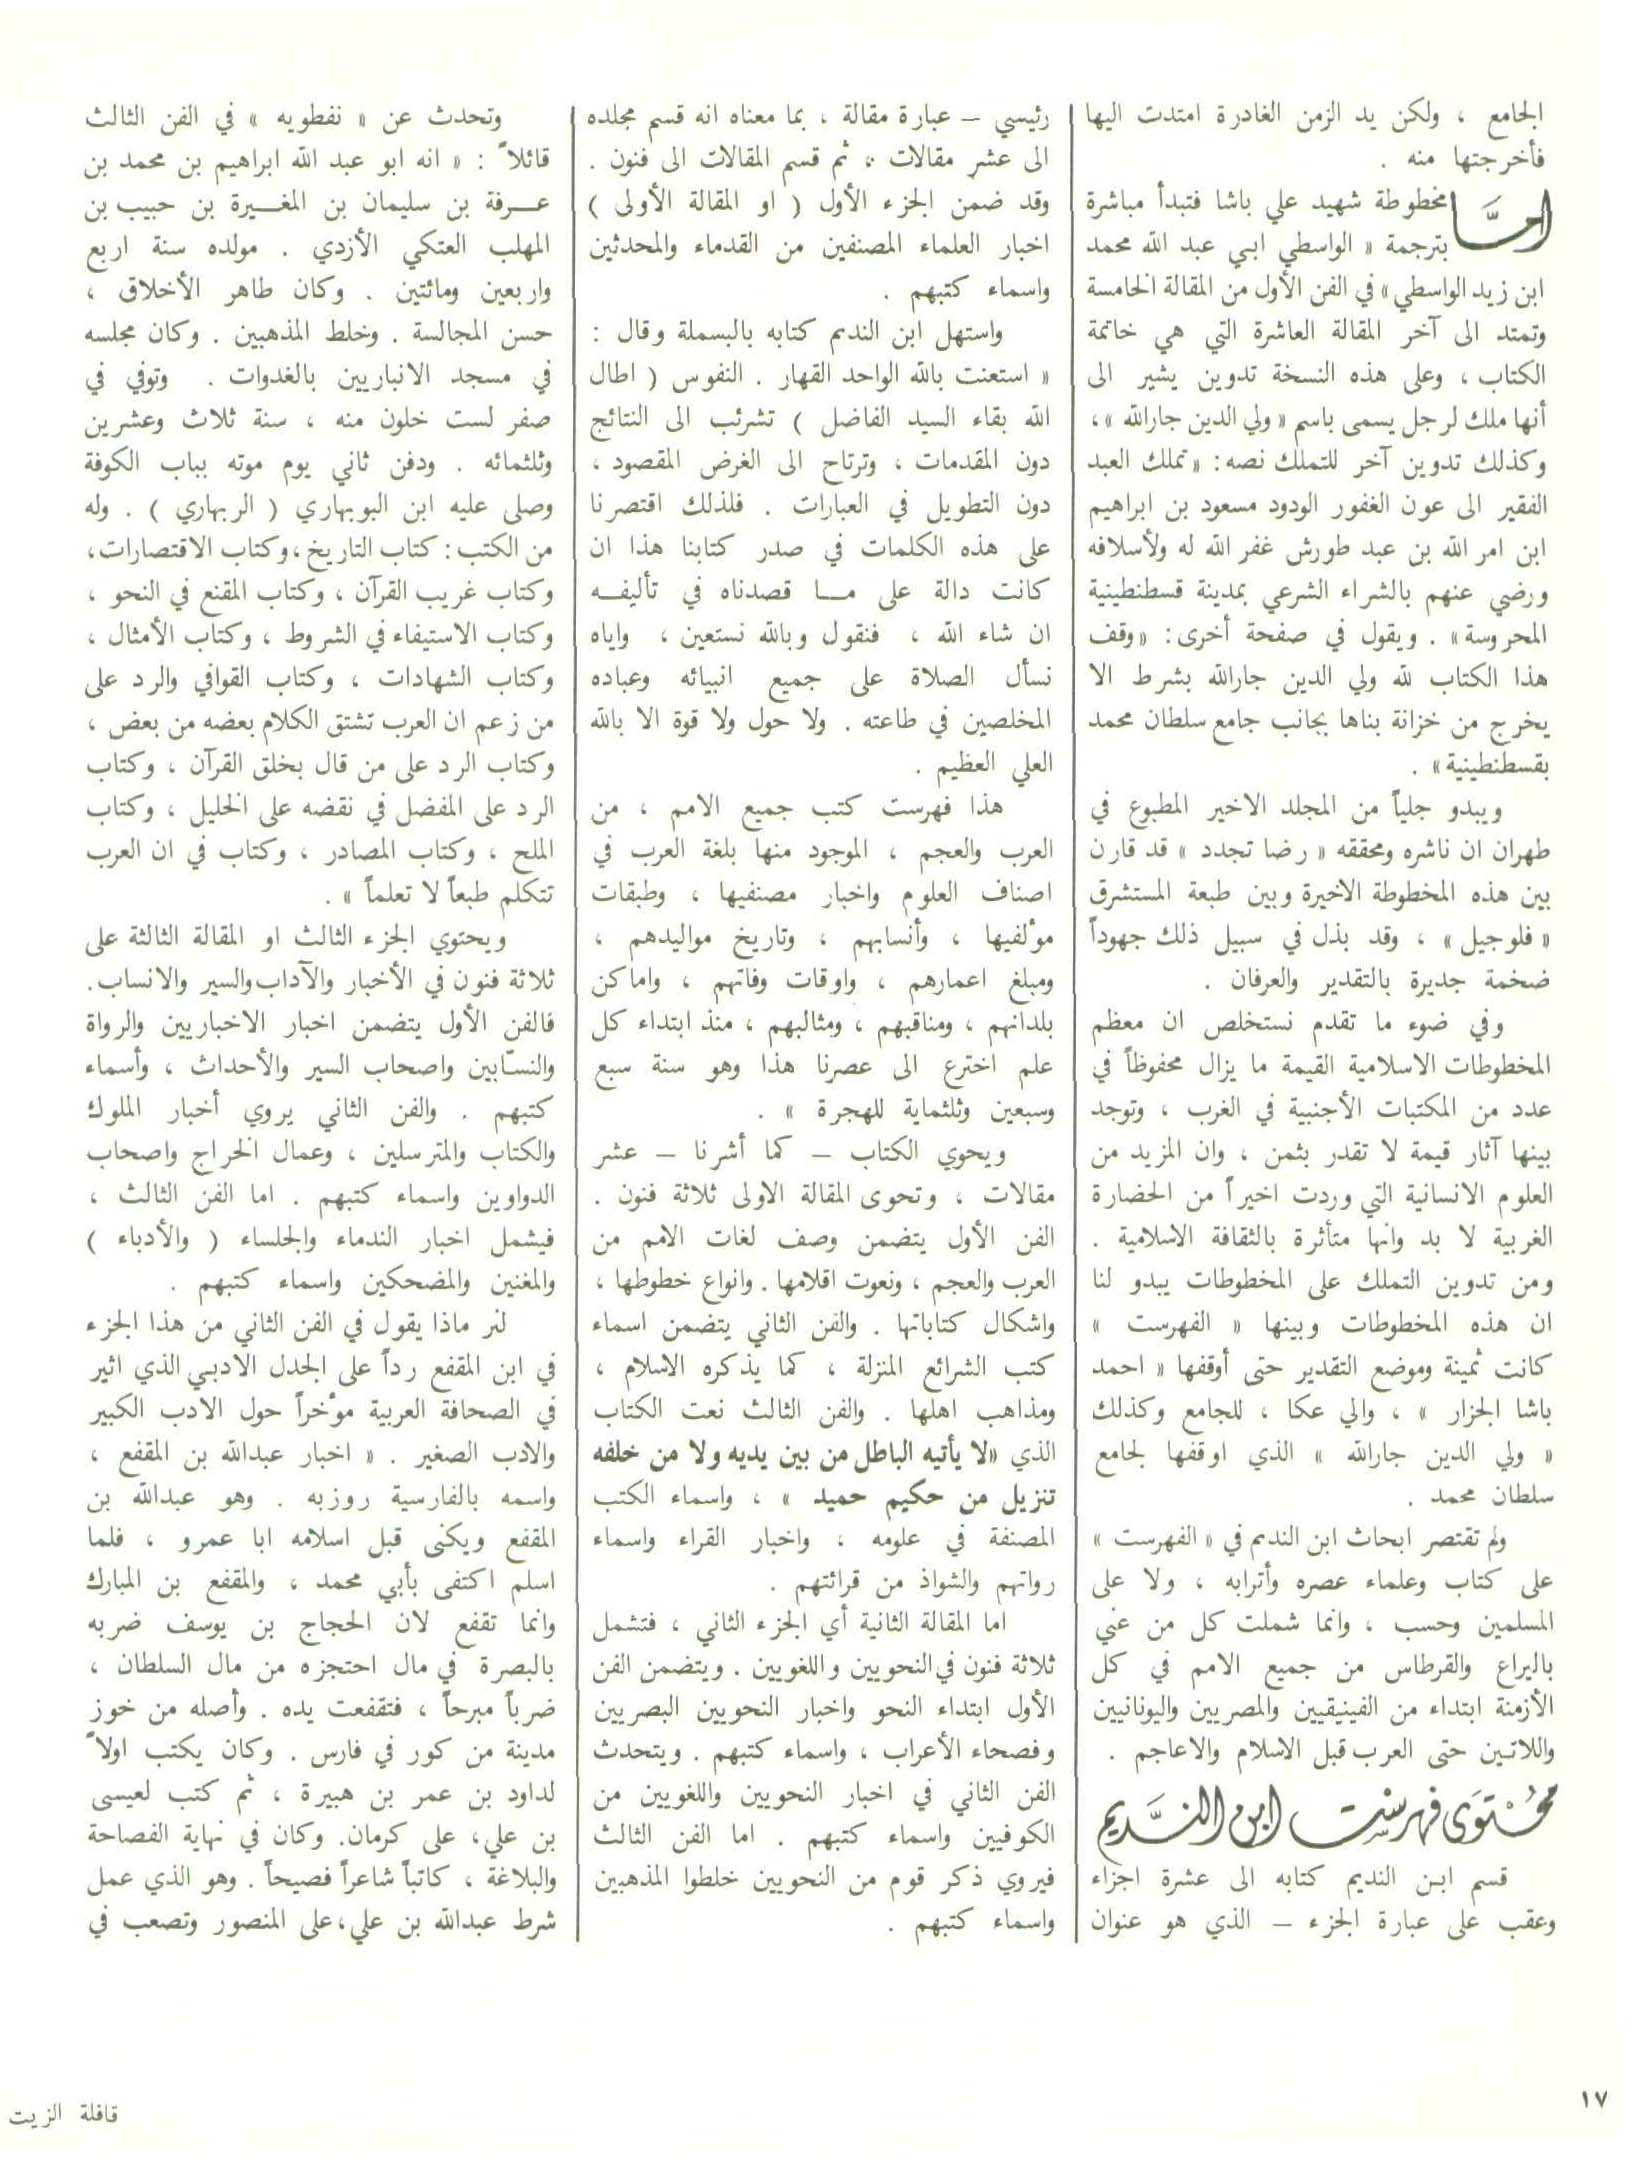 الجامع ، ولكن يد الزمن الغادرة امتدت اليها
فأخرجتها منه .
امَّا مخطوطة شهيد علي باشا فتبدأ مباشرة
بترجمة « الواسطي ابي عبد الله محمد
ابن زيد الواسطي» في الفن الأول من المقالة الخامسة
وتمتد الى آخر المقالة العاشرة التي هي خاتمة
الكتاب ، وعلى هذه النسخة تدوين يشير الى
أنها ملك لرجل يسمى باسم « ولي الدين جارالله »،
وكذلك تدوين آخر للتملك نصه: «تملك العبد
الفقير الى عون الغفور الودود مسعود بن ابراهيم
ابن امر الله بن عبد طورش غفر الله له ولأسلافه
ورضي عنهم بالشراء الشرعي بمدينة قسطنطينية
المحروسة» . ويقول في صفحة أخرى: «وقف
هذا الكتاب لله ولي الدين جارالله بشرط الا
يخرج من خزانة بناها بجانب جامع سلطان محمد
بقسطنطينية» .
ويبدو جلياً من المجلد الاخير المطبوع في
طهران ان ناشره ومحققه « رضا تجدد » قد قارن
بين هذه المخطوطة الاخيرة وبين طبعة المستشرق
« فلوجيل » ، وقد بذل في سبيل ذلك جهوداً
ضخمة جديرة بالتقدير والعرفان .
وفي ضوء ما تقدم نستخلص ان معظم
المخطوطات الاسلامية القيمة ما يزال محفوظاً في
عدد من المكتبات الأجنبية في الغرب ، وتوجد
بينها آثار قيمة لا تقدر بثمن ، وان المزيد من
العلوم الانسانية التي وردت اخيراً من الحضارة
الغربية لا بد وانها متأثرة بالثقافة الاسلامية .
ومن تدوين التملك على المخطوطات يبدو لنا
ان هذه المخطوطات وبينها « الفهرست »
كانت ثمينة وموضع التقدير حتى أوقفها « احمد
باشا الجزار » ، والي عكا ، للجامع وكذلك
« ولي الدين جارالله » الذي اوقفها لجامع
سلطان محمد .
ولم تقتصر ابحاث ابن النديم في « الفهرست »
على كتاب وعلماء عصره وأترابه ، ولا على
المسلمين وحسب ، وانما شملت كل من عني
باليراع والقرطاس من جميع الامم في كل
الأزمنة ابتداء من الفينيقيين والمصريين واليونانيين
واللاتـين حتى العرب قبل الاسلام والاعاجم .
محُتوَى فهرسْت ابن النَّديم
قسم ابـن النديم كتابه الى عشرة اجزاء
وعقب على عبارة الجزء – الذي هو عنوان
رئيسي – عبارة مقالة ، بما معناه انه قسم مجلده
الى عشر مقالات ، ثم قسم المقالات الى فنون .
وقد ضمن الجزء الأول ( او المقالة الأولى )
اخبار العلماء المصنفين من القدماء والمحدثين
واسماء كتبهم .
واستهل ابن النديم كتابه بالبسملة وقال :
« استعنت بالله الواحد القهار . النفوس ( اطال
الله بقاء السيد الفاضل ) تشرئب الى النتائج
دون المقدمات ، وترتاح الى الغرض المقصود ،
دون التطويل في العبارات . فلذلك اقتصرنا
على هذه الكلمات في صدر كتابنا هذا ان
كانت دالة على مـا قصدناه في تأليفـه
ان شاء الله ، فنقول وبالله نستعين ، واياه
نسأل الصلاة على جميع انبيائه وعباده
المخلصين في طاعته . ولا حول ولا قوة الا بالله
العلي العظيم .
هذا فهرست كتب جميع الامم ، من
العرب والعجم ، الموجود منها بلغة العرب في
اصناف العلوم واخبار مصنفيها ، وطبقات
مؤلفيها ، وأنسابهم ، وتاريخ مواليدهم ،
ومبلغ اعمارهم ، واوقات وفاتهم ، واماكن
بلدانهم ، ومناقبهم ، ومثالبهم ، منذ ابتداء كل
علم اخترع الى عصرنا هذا وهو سنة سبع
وسبعين وثلثماية للهجرة » .
ويحوي الكتاب – كما أشرنا – عشر
مقالات ، وتحوى المقالة الاولى ثلاثة فنون .
الفن الأول يتضمن وصف لغات الامم من
العرب والعجم ، ونعوت اقلامها . وانواع خطوطها ،
واشكال كتاباتها . والفن الثاني يتضمن اسماء
كتب الشرائع المنزلة ، كما يذكره الاسلام ،
ومذاهب اهلها . والفن الثالث نعت الكتاب
الذي «لا يأتيه الباطل من بين يديه ولا من خلفه
تنزيل من حكيم حميد » ، واسماء الكتب
المصنفة في علومه ، واخبار القراء واسماء
رواتهم والشواذ من قرائتهم .
اما المقالة الثانية أي الجزء الثاني ، فتشمل
ثلاثة فنون في النحويين واللغويين . ويتضمن الفن
الأول ابتداء النحو واخبار النحويين البصريين
وفصحاء الأعراب ، واسماء كتبهم . ويتحدث
الفن الثاني في اخبار النحويين واللغويين من
الكوفيين واسماء كتبهم . اما الفن الثالث
فيروي ذكر قوم من النحويين خلطوا المذهبين
واسماء كتبهم .
وتحدث عن « نفطويه » في الفن الثالث
قائلاً : « انه ابو عبد الله ابراهيم بن محمد بن
عـرفة بن سليمان بن المغـيرة بن حبيب بن
المهلب العتكي الأزدي . مولده سنة اربع
واربعين ومائتين . وكان طاهر الأخلاق ،
حسن المجالسة . وخلط المذهبين . وكان مجلسه
في مسجد الانباريين بالغدوات . وتوفي في
صفر لست خلون منه ، سنة ثلاث وعشرين
وثلثمائه . ودفن ثاني يوم موته بباب الكوفة
وصلى عليه ابن البوبهاري ( الربهاري ) . وله
من الكتب : كتاب التاريخ ، وكتاب الاقتصارات،
وكتاب غريب القرآن ، وكتاب المقنع في النحو ،
وكتاب الاستيفاء في الشروط ، وكتاب الأمثال ،
وكتاب الشهادات ، وكتاب القوافي والرد على
من زعم ان العرب تشتق الكلام بعضه من بعض ،
وكتاب الرد على من قال بخلق القرآن ، وكتاب
الرد على المفضل في نقضه على الخليل ، وكتاب
الملح ، وكتاب المصادر ، وكتاب في ان العرب
تتكلم طبعاً لا تعلماً » .
ويحتوي الجزء الثالث او المقالة الثالثة على
ثلاثة فنون في الأخبار والآداب والسير والانساب.
فالفن الأول يتضمن اخبار الاخباريين والرواة
والنسّابين واصحاب السير والأحداث ، وأسماء
كتبهم . والفن الثاني يروي أخبار الملوك
والكتاب والمترسلين ، وعمال الخراج واصحاب
الدواوين واسماء كتبهم . اما الفن الثالث ،
فيشمل اخبار الندماء والجلساء ( والأدباء )
والمغنين والمضحكين واسماء كتبهم .
لنر ماذا يقول في الفن الثاني من هذا الجزء
في ابن المقفع رداً على الجدل الادبي الذي اثير
في الصحافة العربية مؤخراً حول الادب الكبير
والادب الصغير . « اخبار عبدالله بن المقفع ،
واسمه بالفارسية روزبه . وهو عبدالله بن
المقفع ويكنى قبل اسلامه ابا عمرو ، فلما
اسلم اكتفى بأبي محمد ، والمقفع بن المبارك
وانما تقفع لان الحجاج بن يوسف ضربه
بالبصرة في مال احتجزه من مال السلطان ،
ضرباً مبرحاً ، فتقفعت يده . وأصله من خوز
مدينة من كور في فارس . وكان يكتب اولاً
لداود بن عمر بن هبيرة ، ثم كتب لعيسى
بن علي، على كرمان. وكان في نهاية الفصاحة
والبلاغة ، كاتباً شاعراً فصيحاً . وهو الذي عمل
شرط عبدالله بن علي،على المنصور وتصعب في
١٧
قافلة الزيت